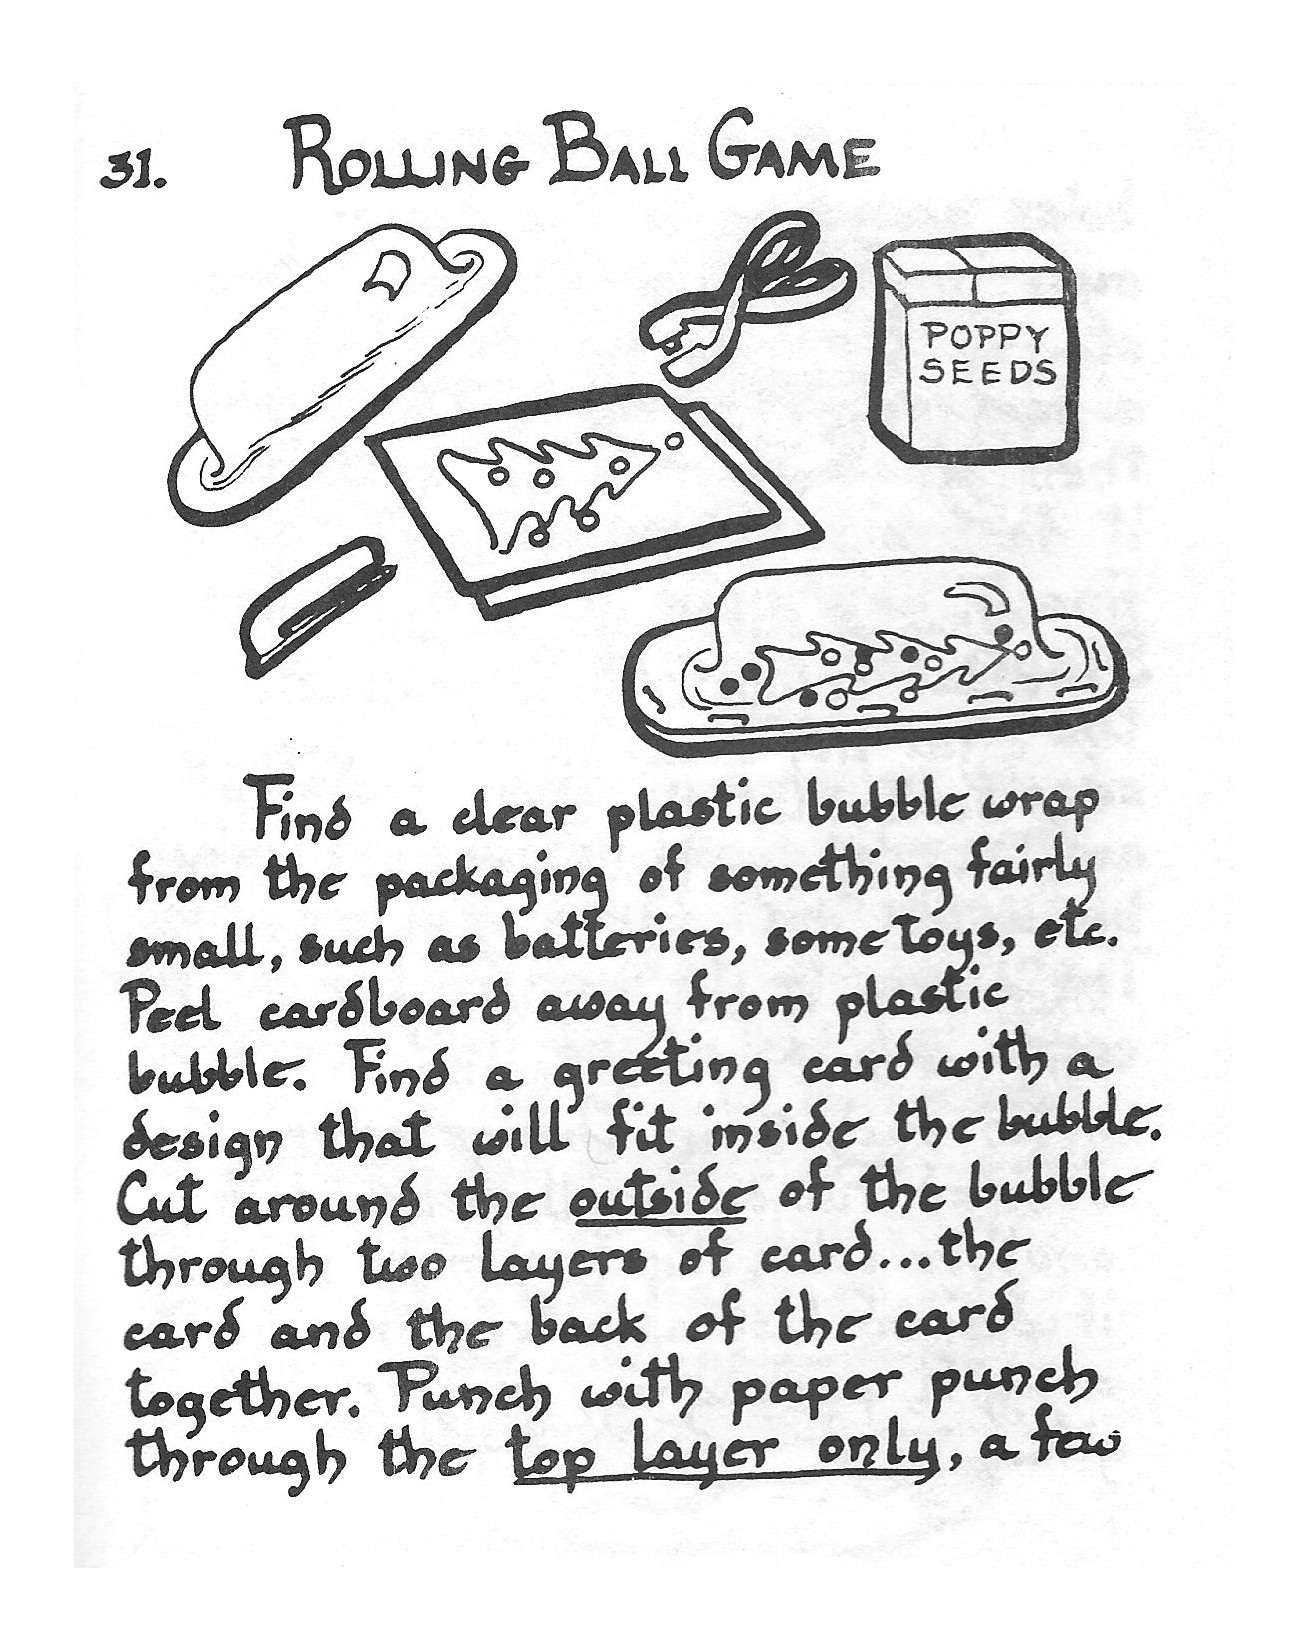 31. ROLLING BALL GAME
POPPY
SEEDS
Find a clear plastic bubble wrap
from the packaging of something fairly
small, such as batteries, some toys, etc.
Peel cardboard away from plastic
bubble. Find a greeting card with a
design that will fit inside the bubble.
Cut around the outside of the bubble
through two layers of card...the
card and the back of the card
together. Punch with paper punch
through the top layer only, a few